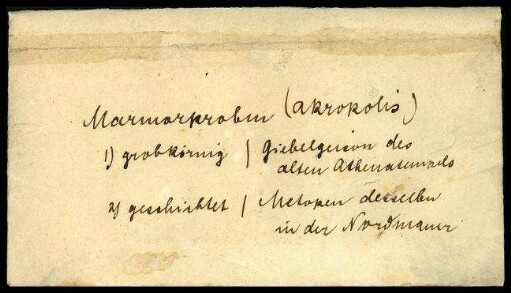 Marmorproben (Akropolis)
1) grobkörnig / Giebelgeison des
alten Athenatempels
2) geschichtet / Metopen desselben
in der Nordmauer